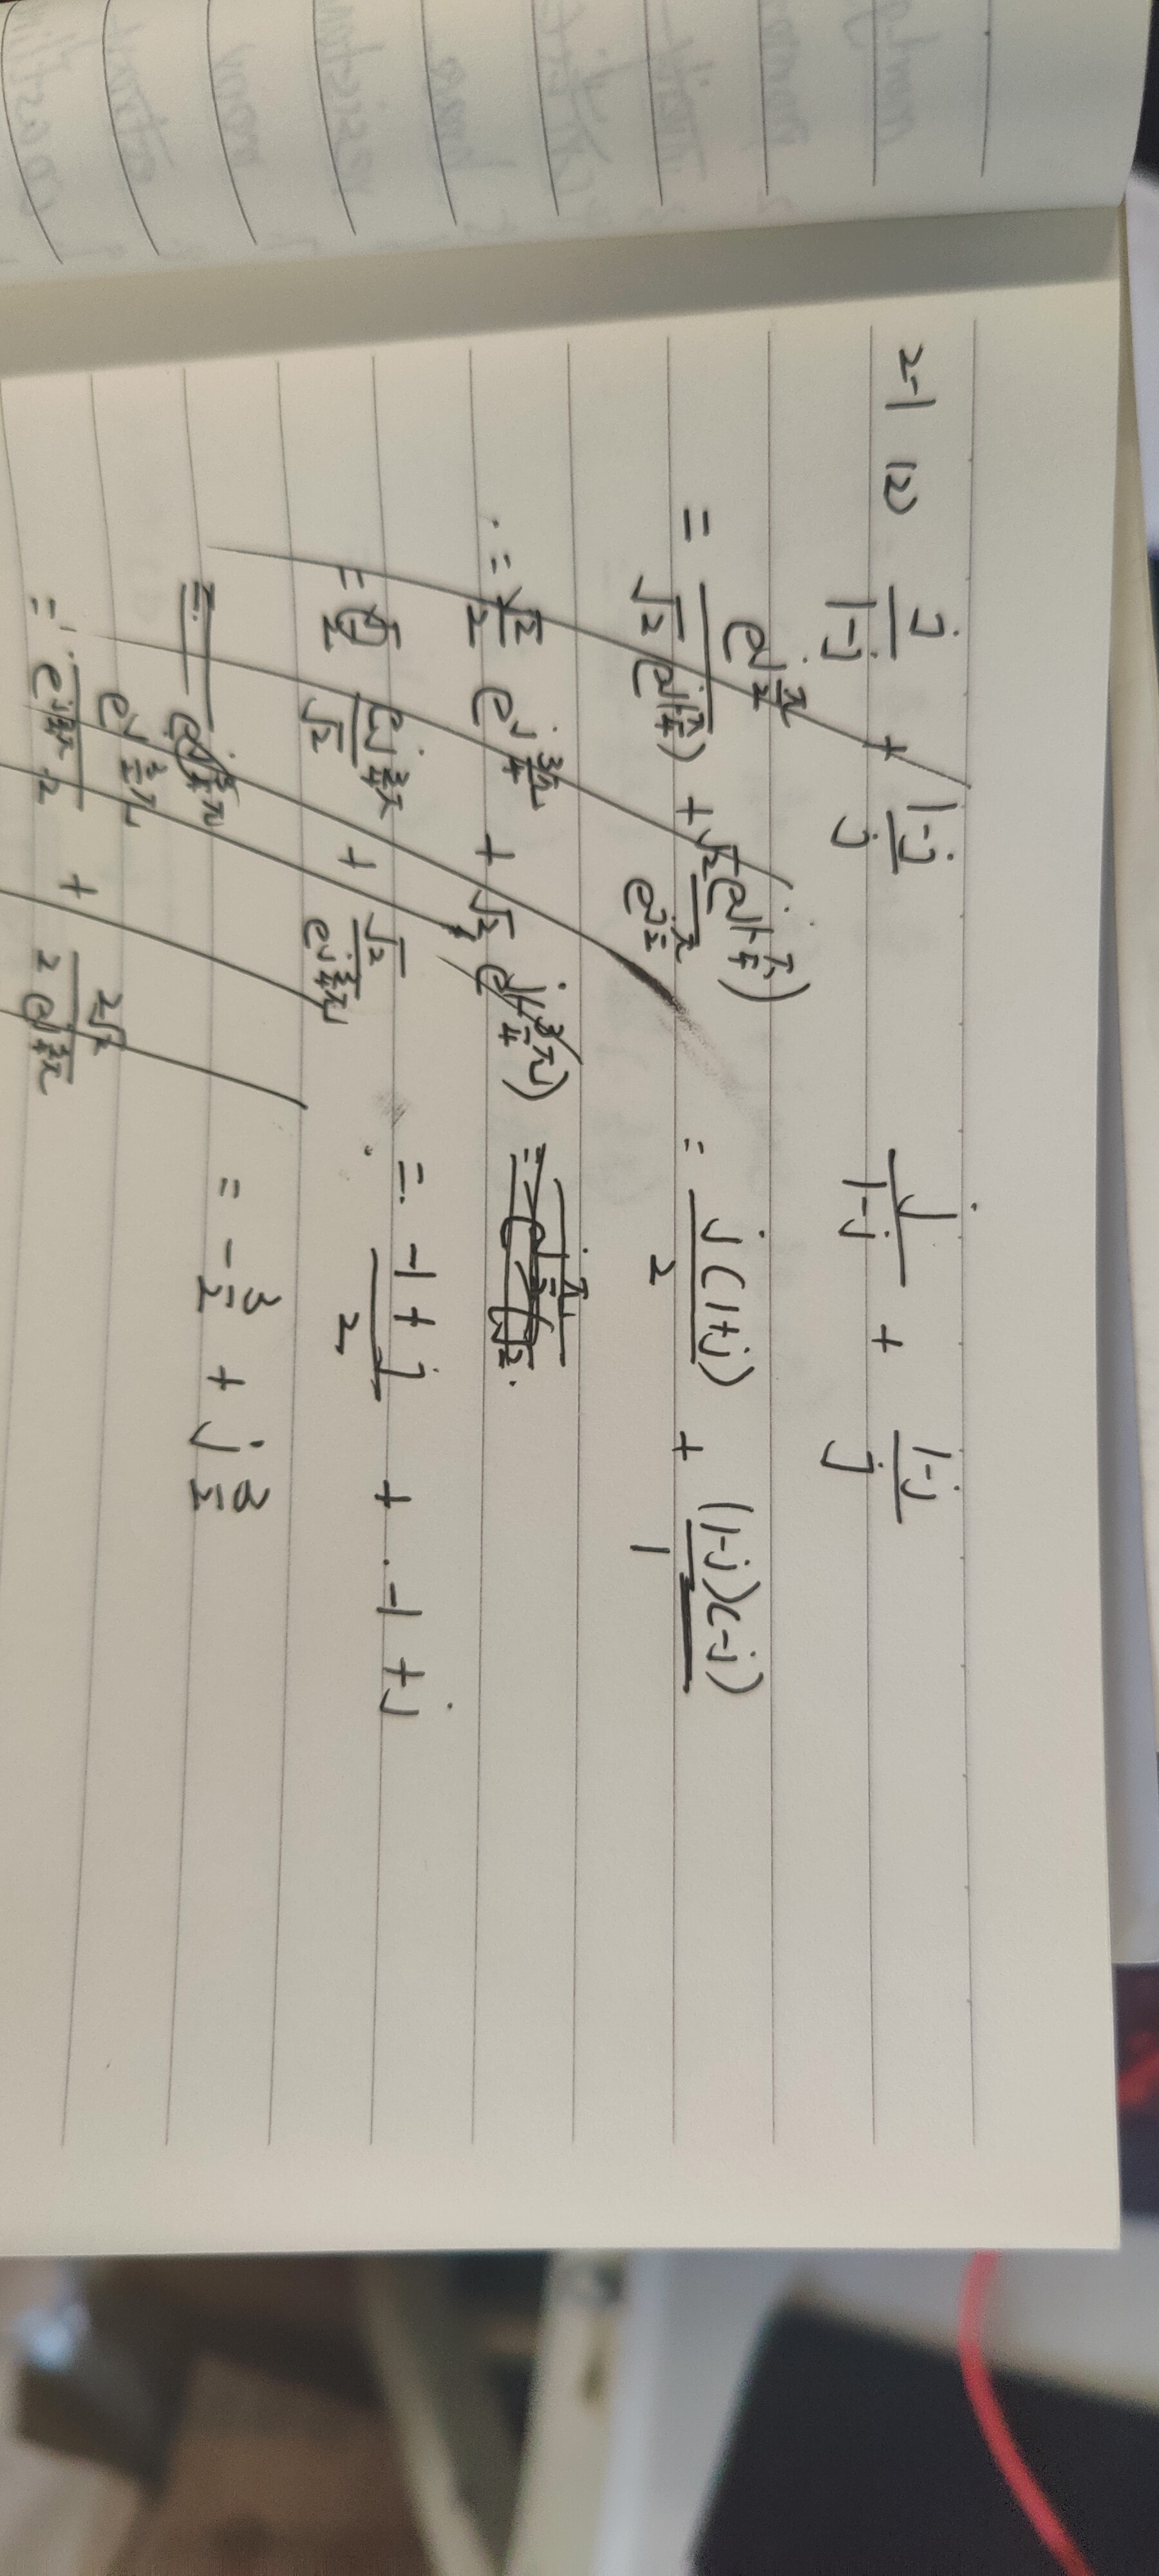 2-1 (2) j/(1-j) + (1-j)/j
= e^{jπ/2}/(√2 e^{j(-π/4)}) + √2 e^{j(-π/4)}/e^{jπ/2}
= √2/2 e^{j3π/4} + √2 e^{j(-3/4π)}
= e^{j3/4π}/√2 + √2/e^{j3/4π}
= e^{j3/4π}
= e^{j3/2π}/(e^{j3/4π}·2) + 2√2/(2 e^{j3/4π})
j/(1-j) + (1-j)/j
= j(1+j)/2 + (1-j)(-j)/1
= (-1+j)/2 + -1+j
= -3/2 + j 3/2